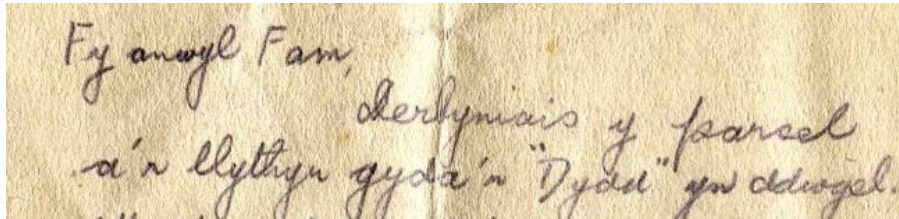 Fy anwyl Fam,
Derbyniais y parsel
a'r llythyr gyda'r "Dydd" yn ddiogel.